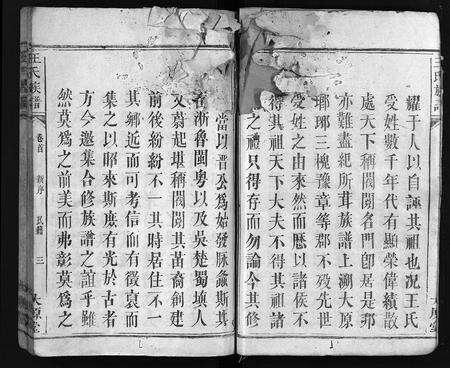 王氏族譜
耀于人以自誣其祖也况王氏
受姓數千年代有顯榮偉績散
處天下稱閥閱名門卽居是邦
亦難盡紀所葺族譜上溯太原
瑯琊三槐豫章等郡不歿先世
受姓之由來然而歷以諸侯不
得其祖天子大夫不得其祖諸
之禮只得存而勿論今其修
當以晋公為始發脉螽斯其
在浙魯閩粤以及吳楚蜀塡人
文蔚起堪稱閥閱其苗裔創建
前後紛紛不一其時居住不一
其鄉近而可考信而有徵裒而
集之以昭來斯庶有光於古者
方今邀集合修族譜之誼乎雖
然莫為之前美而弗彰莫為之
王氏族譜
卷首
新序
三
太原堂